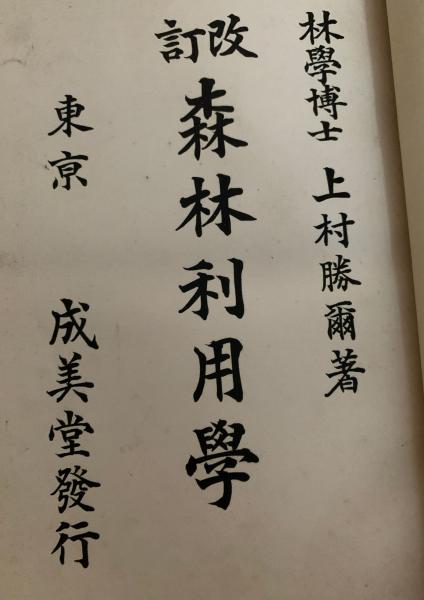 林學博士 上村勝爾著
改訂
森林利用學
東京 成美堂發行